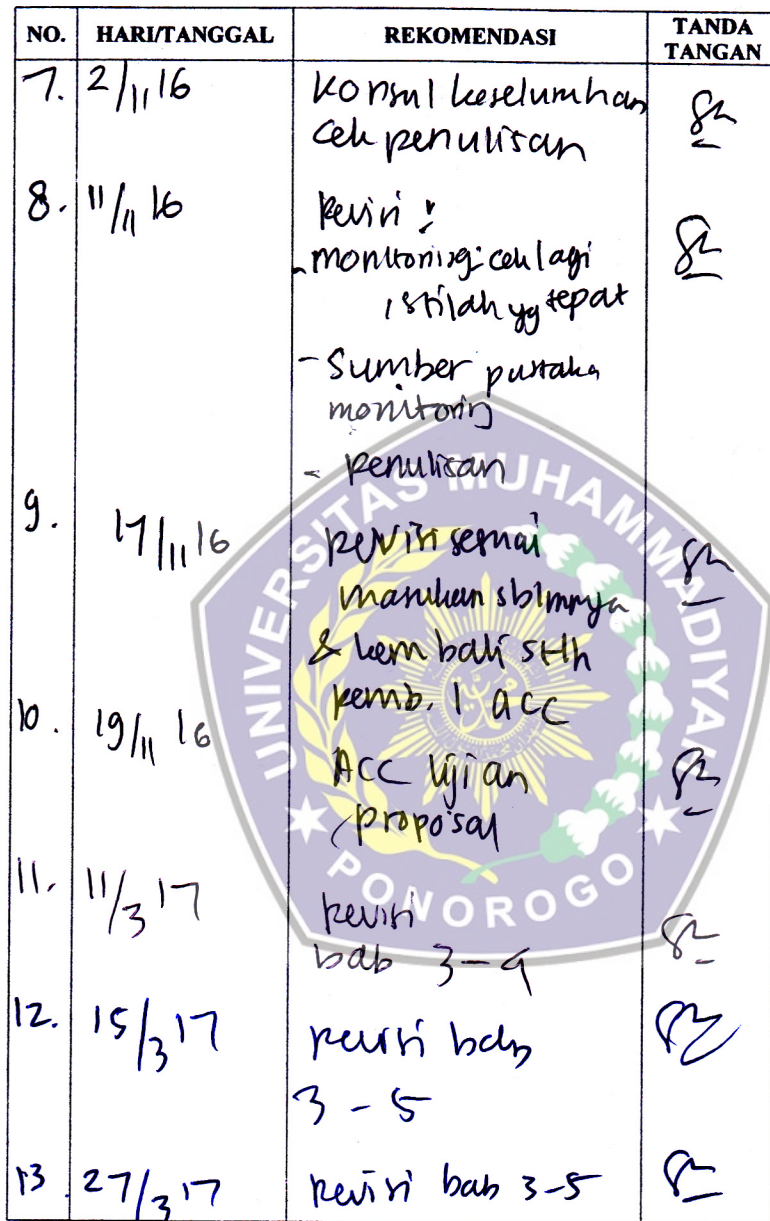 NO. HARI/TANGGAL REKOMENDASI TANDA TANGAN
7. 2/11 16 Konsul keseluruhan
cek penulisan
8. 11/11 16 Revisi :
- monitoring: cek lagi
istilah yg tepat
- Sumber pustaka
monitoring
- penulisan
9. 17/11 16 revisi sesuai
masukan sblmnya
& kembali stlh
pemb. 1 acc
10. 19/11 16
ACC Ujian
proposal
11. 11/3 17 revisi
bab 3-4
12. 15/3 17 revisi bab
3 - 5
13. 27/3 17 revisi bab 3-5
UNIVERSITAS MUHAMMADIYAH
PONOROGO